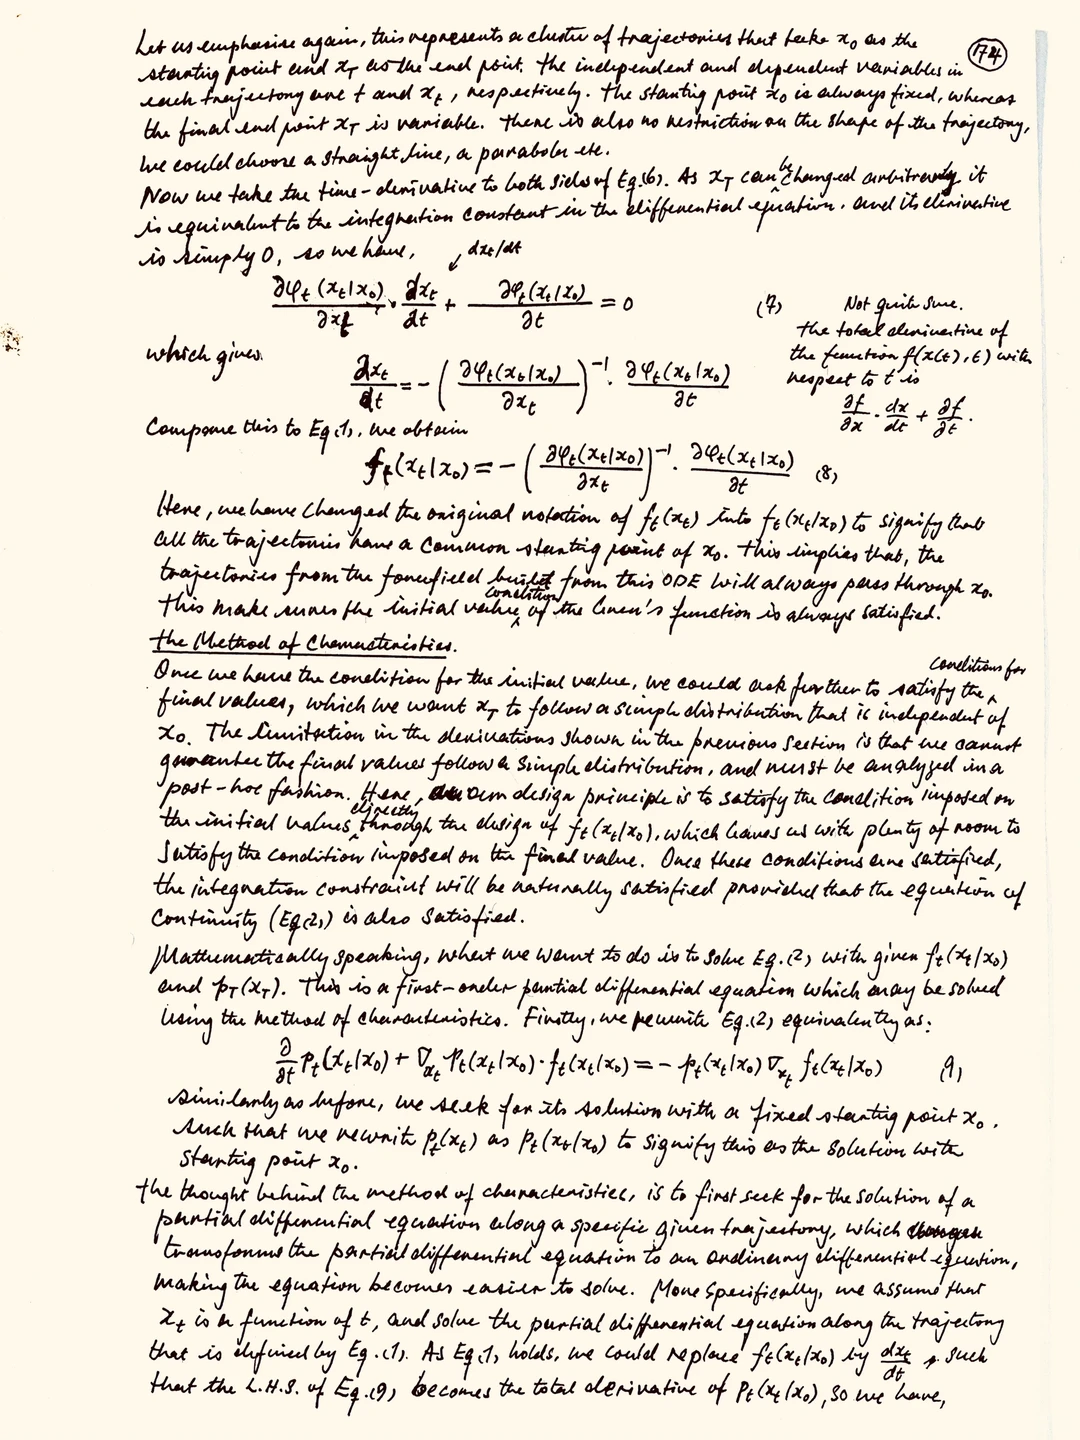 Let us emphasise again, this represents a cluster of trajectories that take x₀ as the
(174)
starting point and x_T as the end point. The independent and dependent variables in
each trajectory are t and x_t, respectively. The starting point x₀ is always fixed, whereas
the final end point x_T is variable. There is also no restriction on the shape of the trajectory,
we could choose a straight line, a parabola etc.
Now we take the time-derivative to both sides of Eq.(6). As x_T can be changed arbitrarily it
is equivalent to the integration constant in the differential equation. and its derivative
is simply 0, so we have, dx_t/dt
∂φ_t(x_t|x₀)/∂x_t · dx_t/dt + ∂φ_t(x_t|x₀)/∂t = 0 (7)
Not quite sure.
the total derivative of
the function f(x(t), t) with
respect to t is
∂f/∂x · dx/dt + ∂f/∂t.
which gives
dx_t/dt = -(∂φ_t(x_t|x₀)/∂x_t)⁻¹ · ∂φ_t(x_t|x₀)/∂t
Compare this to Eq.(1), we obtain
f_t(x_t|x₀) = -(∂φ_t(x_t|x₀)/∂x_t)⁻¹ · ∂φ_t(x_t|x₀)/∂t (8)
Here, we have changed the original notation of f_t(x_t) into f_t(x_t|x₀) to signify that
all the trajectories have a common starting point of x₀. This implies that, the
trajectories from the forcefield built from this ODE will always pass through x₀.
This make sures the initial value condition of the Green's function is always satisfied.
The Method of Characteristics.
Once we have the condition for the initial value, we could ask further to satisfy the conditions for
final values, which we want x_T to follow a simple distribution that is independent of
x₀. The limitation in the derivations shown in the previous section is that we cannot
guarantee the final values follow a simple distribution, and must be analyzed in a
post-hoc fashion. Here, our design principle is to satisfy the condition imposed on
the initial values directly through the design of f_t(x_t|x₀), which leaves us with plenty of room to
satisfy the condition imposed on the final value. Once these conditions are satisfied,
the integration constraint will be naturally satisfied provided that the equation of
continuity (Eq.(2)) is also satisfied.
Mathematically speaking, what we want to do is to solve Eq.(2) with given f_t(x_t|x₀)
and p_T(x_T). This is a first-order partial differential equation which may be solved
using the method of characteristics. Firstly, we rewrite Eq.(2) equivalently as:
∂/∂t p_t(x_t|x₀) + ∇_{x_t} p_t(x_t|x₀) · f_t(x_t|x₀) = - p_t(x_t|x₀) ∇_{x_t} f_t(x_t|x₀) (9)
similarly as before, we seek for its solution with a fixed starting point x₀.
such that we rewrite p_t(x_t) as p_t(x_t|x₀) to signify this as the solution with
starting point x₀.
The thought behind the method of characteristics, is to first seek for the solution of a
partial differential equation along a specific given trajectory, which
transforms the partial differential equation to an ordinary differential equation,
making the equation becomes easier to solve. More specifically, we assume that
x_t is a function of t, and solve the partial differential equation along the trajectory
that is defined by Eq.(1). As Eq.(1) holds, we could replace f_t(x_t|x₀) by dx_t/dt, such
that the L.H.S. of Eq.(9) becomes the total derivative of p_t(x_t|x₀), so we have,